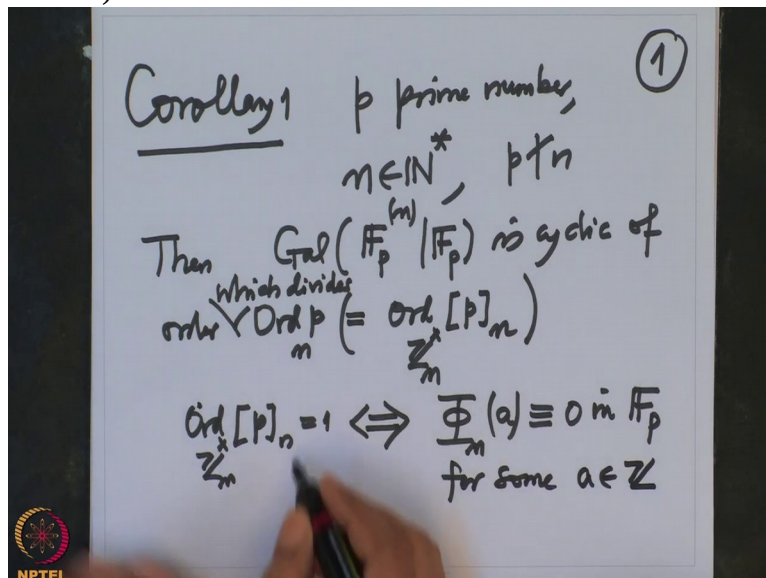 ①
Corollary 1 p prime number,
n∈ℕ*, p∤n
Then Gal(𝔽_p^(n) | 𝔽_p) is cyclic of
which divides
order ∨ Ord_n p (= ord_{ℤ_n^×} [p]_n)
Ord_{ℤ_n^×} [p]_n = 1 ⟺ Φ_n(a) ≡ 0 in 𝔽_p
for some a∈ℤ
NPTEL